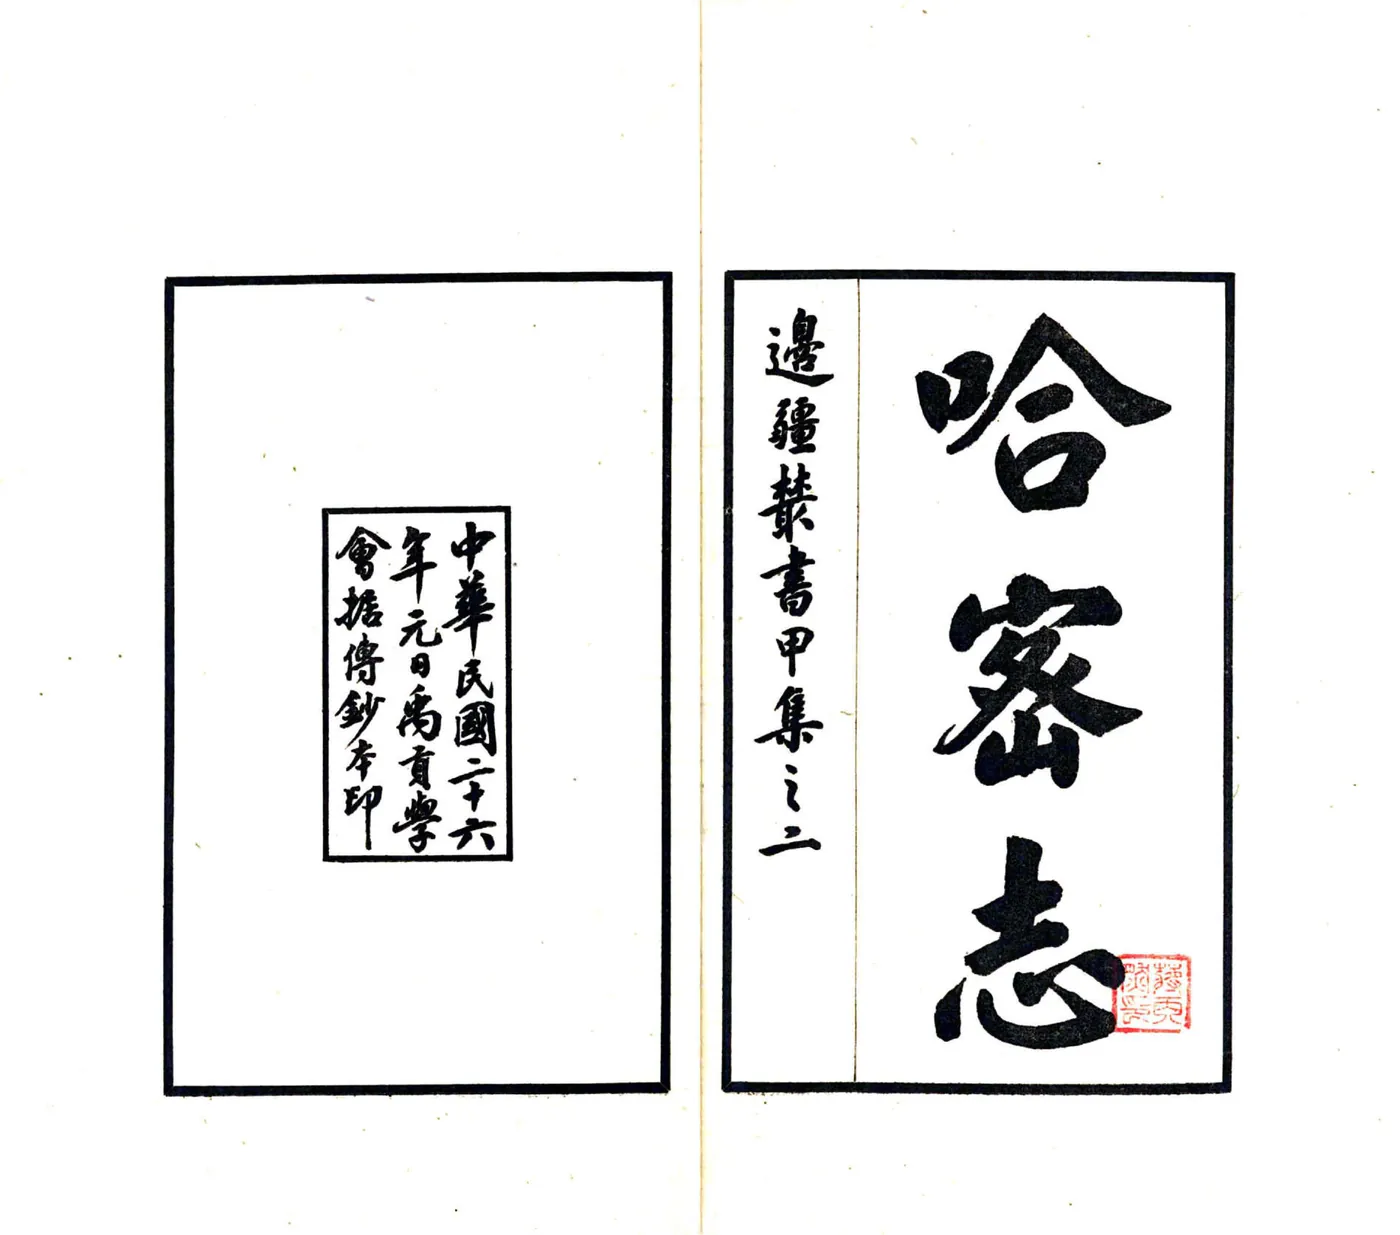 哈密志
邊疆叢書甲集之二
中華民國二十六
年元日禹貢學
會据傳鈔本印